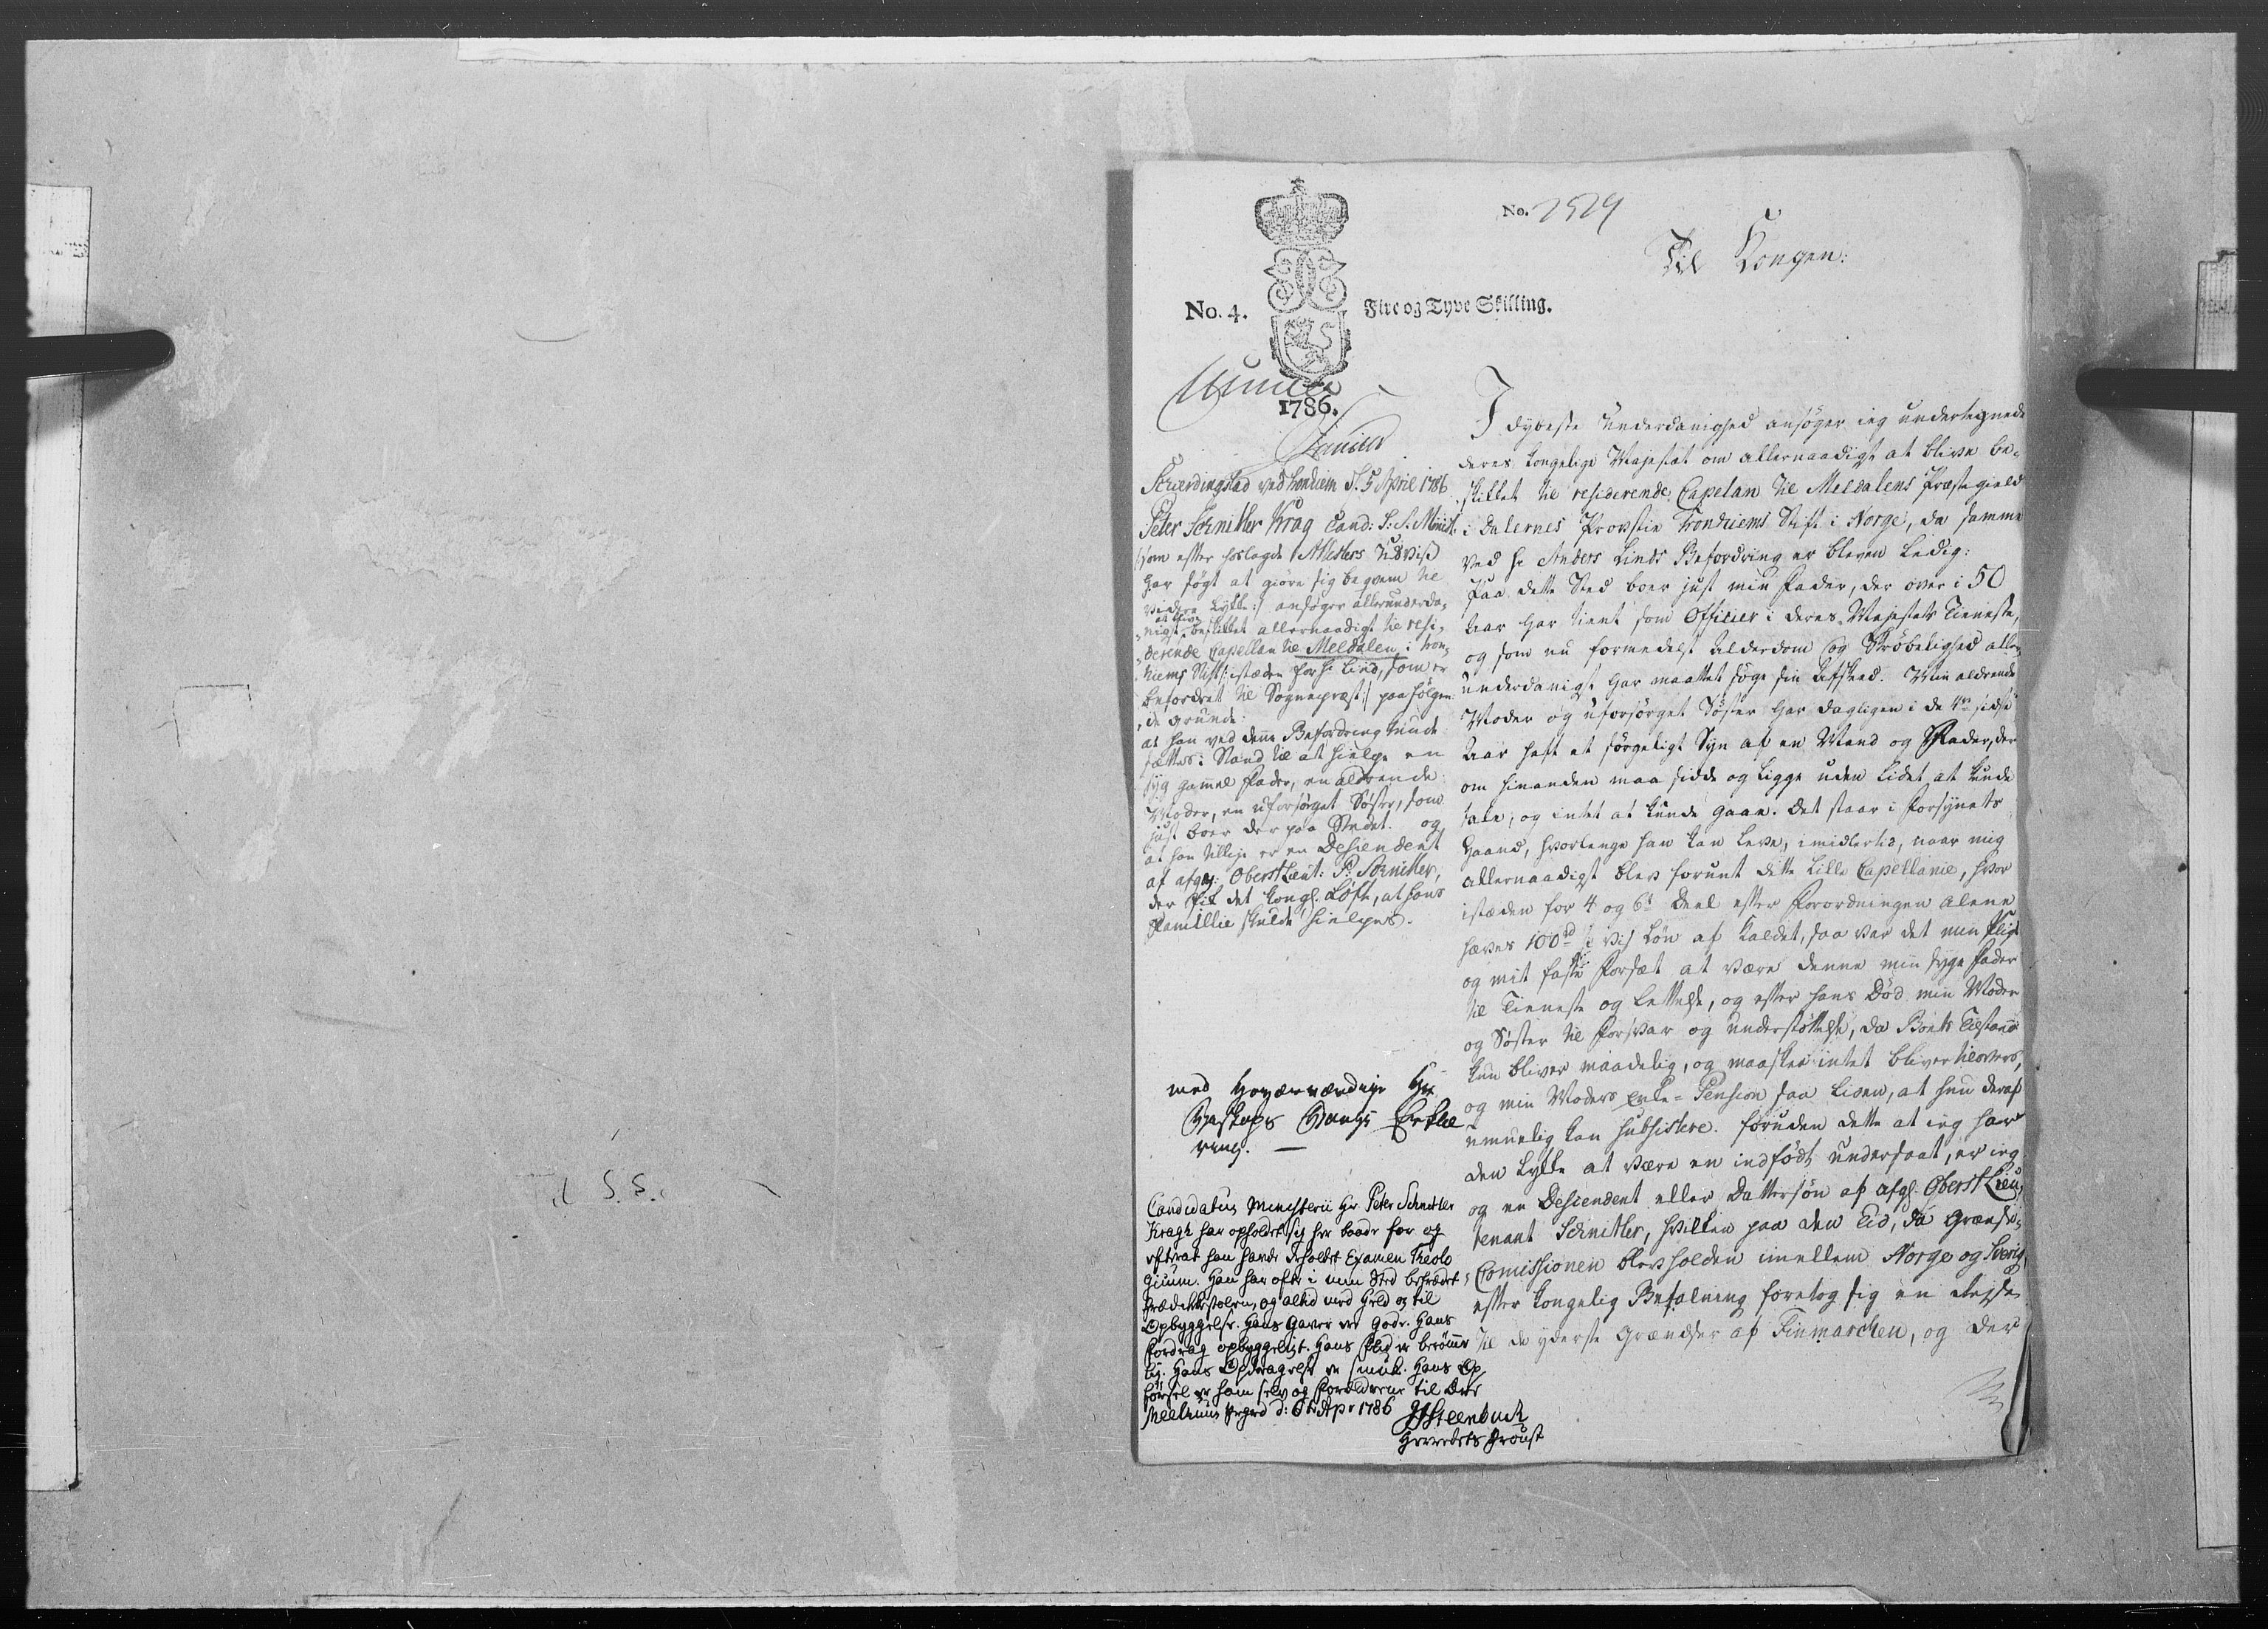 No. 2529
Til Kongen:
No. 4.
Fire og Tyve Skilling.
1786.
Stverdingstad ved Trondiem d. 5 April 1786
Peter Schnitler Krag Cand: S: S. Minist:
(som efter hoslagde Attesters Udviis
har søgt at giøre sig beqvem til
videre Lykke:) ansøger allerunderda-
at blive
nigst beskikket allernaadigst til resi-
derende Capellan til Meldalen i Tron-
hiems Stift /: istæden for Hr Lind, som er
befordret til Sognepræst :/ paa følgen-
de Grunde:
at han ved denne Befordring kunde
sættes i Stand til at hielpe en
syg gammel Fader, en aldrende
Moder, en uforsørget Søster, som
just boer der paa Stedet. og
at han tillige er en Desiendent
af afgag: Oberst Lieut: P: Schnitler,
der fik det Kongl. Løfte, at hans
Familllie skulde hielpes.
med Høyærværdige Hr
Biskops Bangs Erklæ
ring. —
Candidatus Ministerii Hr. Peter Schnitler
Kragh har opholdet sig her baade før og
efterat han havde erholdet Examen Theolo
gicum. Han har ofte i min Sted betrædet
Prædikestolen, og altid med Held og til
Opbyggelse. Hans Gaver er gode. Hans
Fordrag opbyggeligt. Hans Flid er berømme
lig. Hans Opdragelse er smuk. Hans Op
førsel er ham selv og Forældrene til Ære
Meelhuus Prgrd d: 6te Apr 1786 Steenbuch
Herredets Proust
I dybeste Underdanighed ansøger jeg undertegnede
Deres Kongelige Majestæt om allernaadigst at blive be-
skikket til residerende Capelan til Meldalens Præstegield
i Dalernes Provstie Trondhiems Stift i Norge, da samme
ved Hr Anders Linds Befordring er bleven ledig:
Paa dette Sted boer just min Fader, der over i 50
Aar har tient som Officier i Deres Majestæts Tieneste,
og som nu formedelst Alderdom og Skrøbelighed aller-
underdanigst har maattet søge sin Afskeed. Min aldrende
Moder og uforsørget Søster har dagligen i de 4re sidste
Aar haft et sørgeligt Syn af en Mand og Fader, der
om hinanden maa sidde og ligge uden lidet at kunde
tale, og intet at kunde gaae. Det staar i Forsynets
Haand, hvorlenge han kan leve, imidlertid, naar mig
allernaadigst blev forunt dette lille Capellanie, hvor
istæden for 4 og 6t Deel efter Forordningen alene
hæves 100 rd i vis Løn af Kaldet, saa var det min Pligt
og mit faste Forsæt at være denne min syge Fader
til Tieneste og Lettelse, og efter hans Død min Moder
og Søster til Forsvar og Understøttelse, da Boets Tilstand
kun bliver maadelig, og maaskee intet bliver tilovers,
og min Moders Enke-Pension saa liden, at hun deraf
umuelig kan subsistere. foruden dette at jeg har
den Lykke at være en indfødt Undersaat, er jeg
og en Desiendent eller Dattersøn af afgl. Oberst Lieu-
tenant Schnitler, hvilken paa den Tid, da Grændse-
Comissionen blev holden imellem Norge og Sverig,
efter Kongelig Befalning foretog sig en Rejse
til de yderste Grændser af Finmarchen, og der